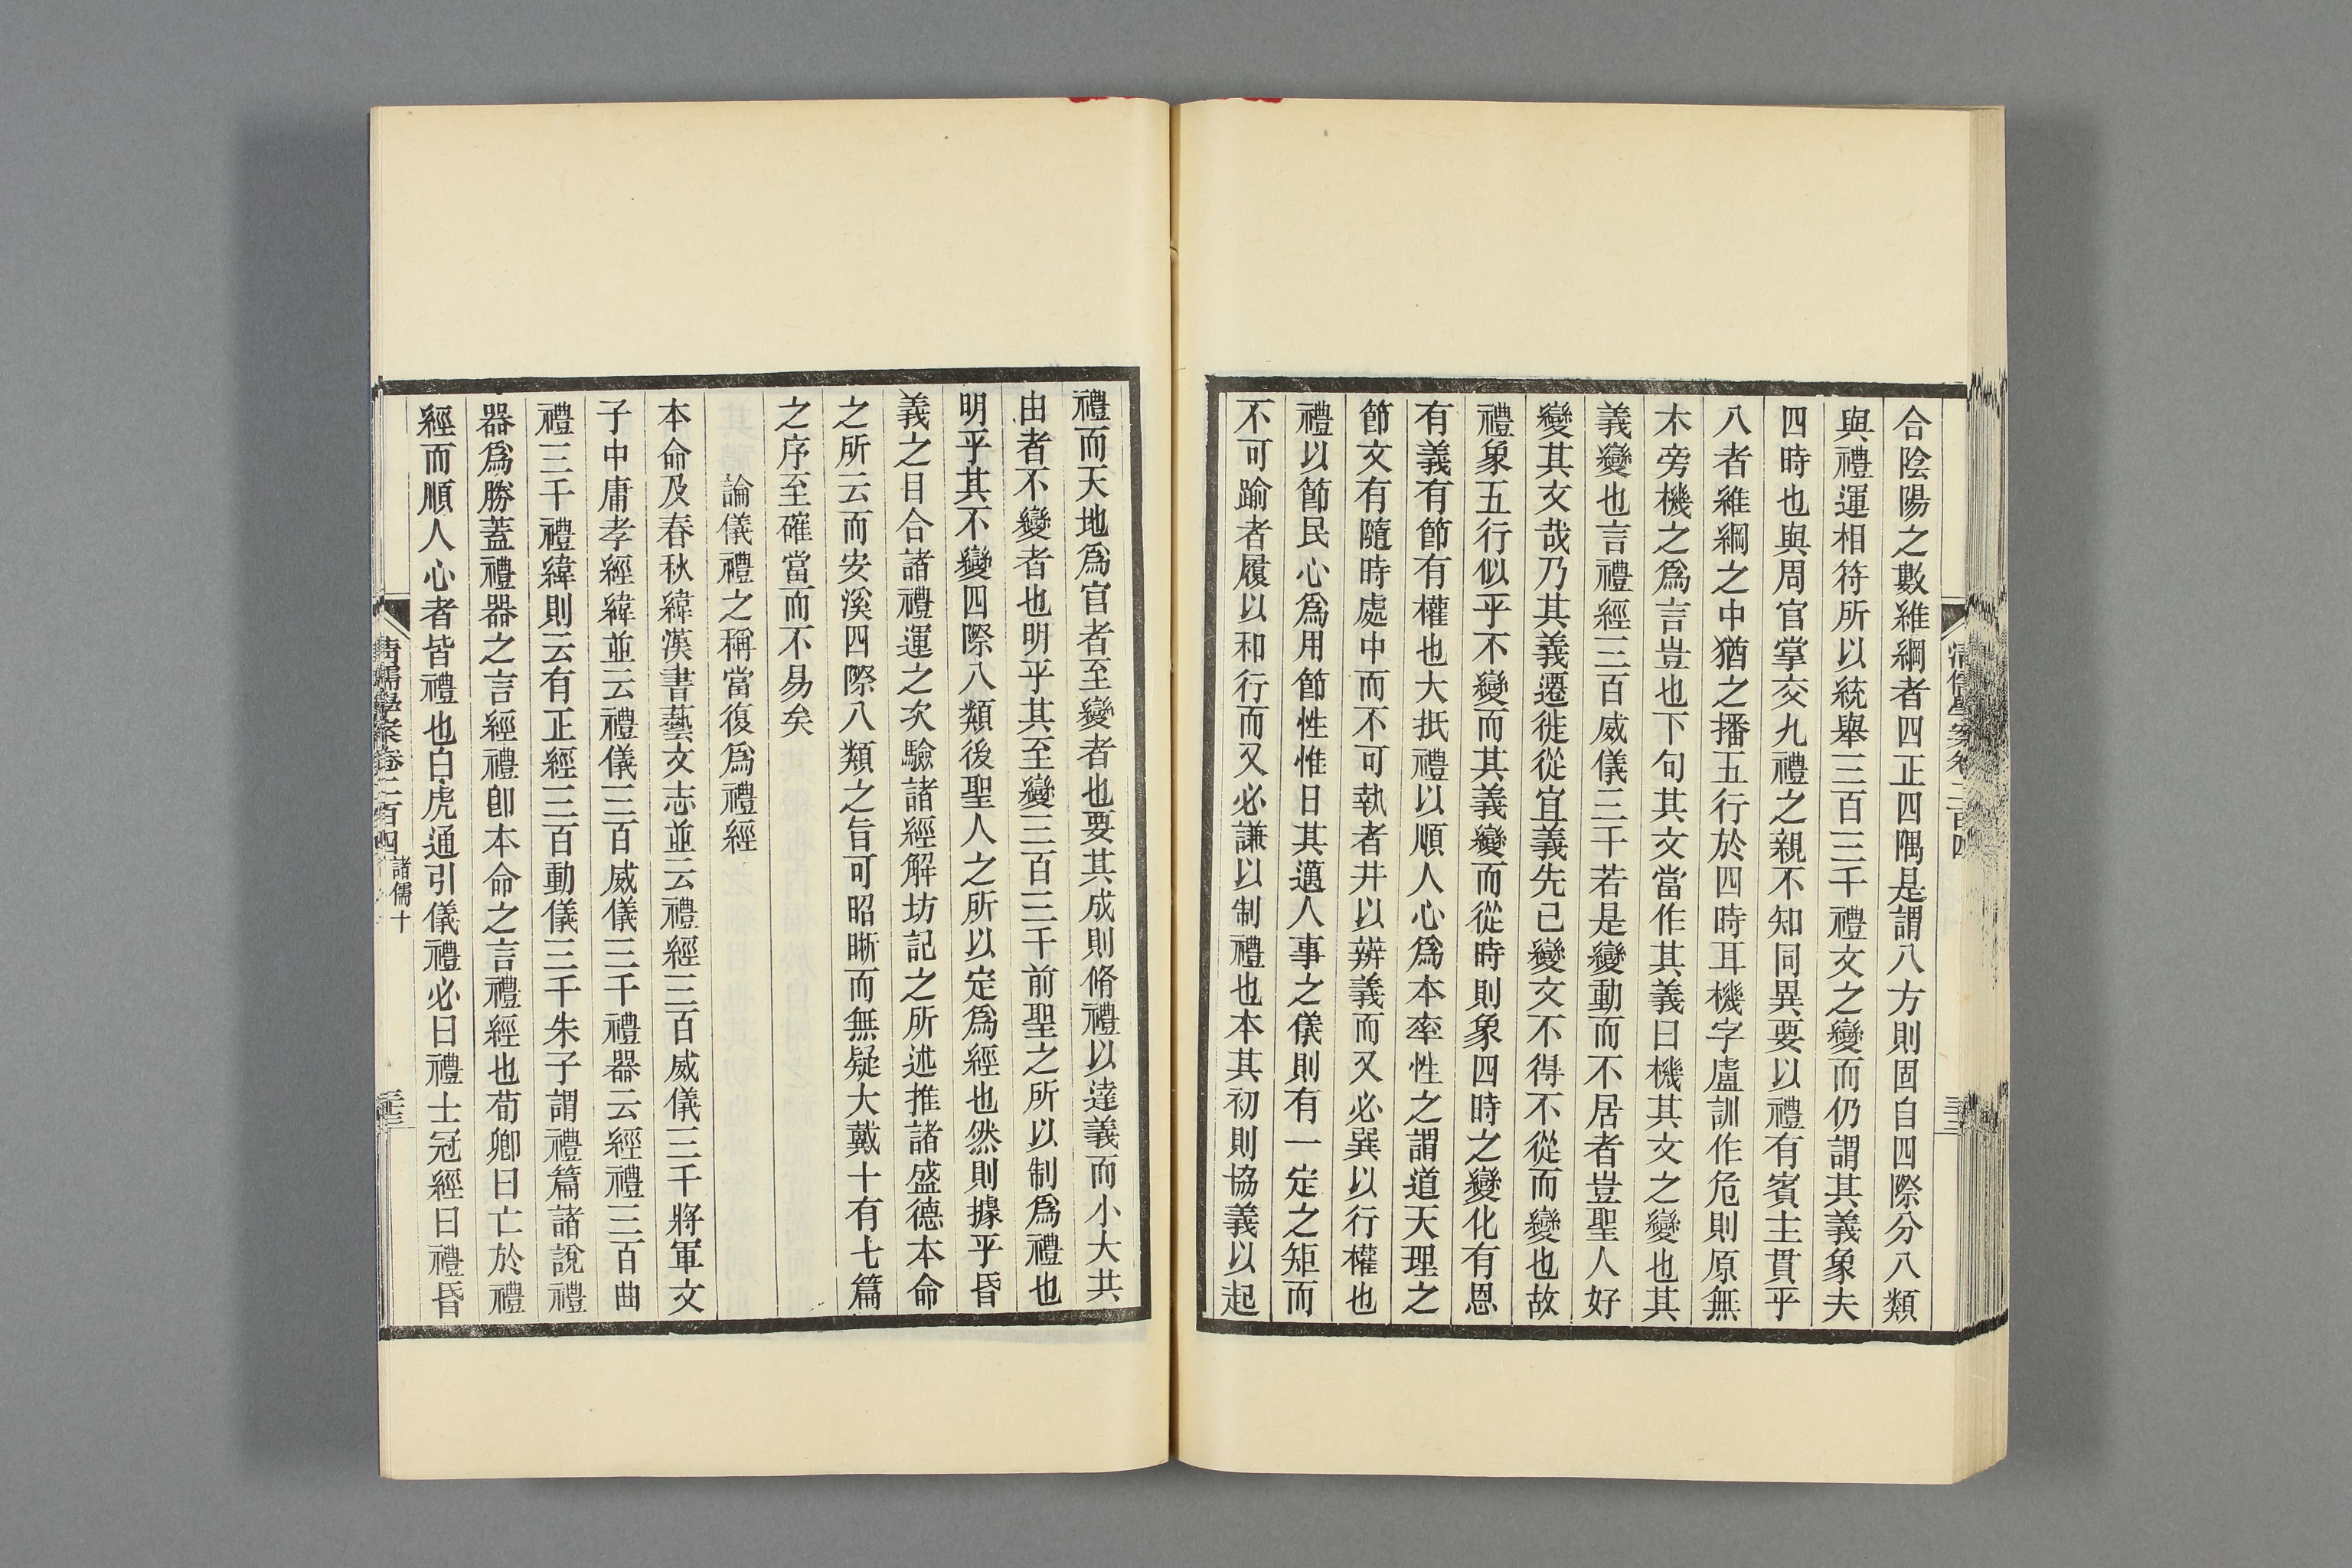 合陰陽之數維綱者四正四隅是謂八方則固自四際分八類
與禮運相符所以統舉三百三千禮文之變而仍謂其義象夫
四時也與周官掌交九禮之親不知同異要以禮有賓主貫乎
八者維綱之中猶之播五行於四時耳機字盧訓作危則原無
木旁機之爲言豈也下句其文當作其義曰機其文之變也其
義變也言禮經三百威儀三千若是變動而不居者豈聖人好
變其文哉乃其義遷徙從宜義先已變文不得不從而變也故
禮象五行似乎不變而其義變而從時則象四時之變化有恩
有義有節有權也大抵禮以順人心爲本率性之謂道天理之
節文有隨時處中而不可執者井以辨義而又必巽以行權也
禮以節民心爲用節性惟日其邁人事之儀則有一定之矩而
不可踰者履以和行而又必謙以制禮也本其初則協義以起
禮而天地爲官者至變者也要其成則脩禮以達義而小大共
由者不變者也明乎其至變三百三千前聖之所以制爲禮也
明乎其不變四際八類後聖人之所以定爲經也然則據乎昏
義之目合諸禮運之次驗諸經解坊記之所述推諸盛德本命
之所云而安溪四際八類之旨可昭晰而無疑大戴十有七篇
之序至確當而不易矣
論儀禮之稱當復爲禮經
本命及春秋緯漢書藝文志並云禮經三百威儀三千將軍文
子中庸孝經緯並云禮儀三百威儀三千禮器云經禮三百曲
禮三千禮緯則云有正經三百動儀三千朱子謂禮篇諸說禮
器爲勝蓋禮器之言經禮卽本命之言禮經也荀卿曰亡於禮
經而順人心者皆禮也白虎通引儀禮必曰禮士冠經曰禮昏
清儒學案卷二百四 諸儒十